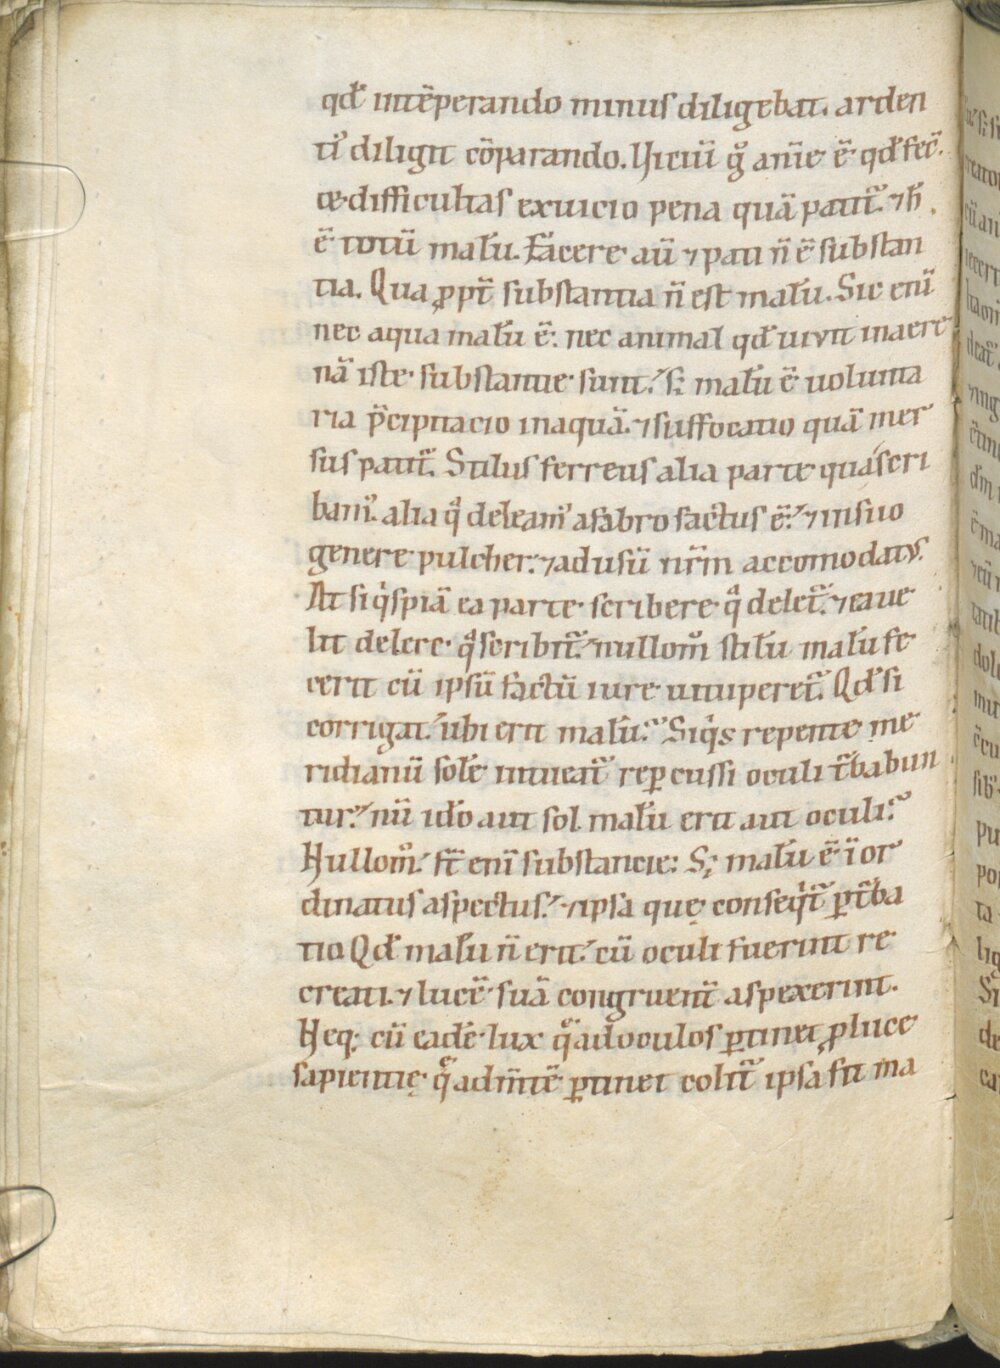 qđ intēperando minus diligebat. arden
ti᾿ diligit cōparando. Viciū gͦ anīe ē qđ fec̄.
ce difficultas ex uicio pena quā patit᷑. ⁊ h̄.
ē totū malū. Facere aū ⁊ pati n̄ ē substan
tia. Qua ꝓpt̄ substantia n̄ est malū. Sic enī
nec aqua malū ē. nec animal qđ uiuit in aere
nā iste substantie sunt. sꝫ malū ē uolunta
ria p̄cipitacio in aquā. ⁊ suffocatio quā mer
sus patit᷑. Stilus ferreus alia parte qua scri
bam᾿. alia qͣ deleam᾿ a fabro factus ē. ⁊ in suo
genere pulcher. ⁊ ad usū nr̄m accomodatus.
At si qͥspiā ea parte scribere qͣ delet᷑. ⁊ ea ue
lit delere qͣ scribit᷑. nullomͦ stilū malū fe
cerit cū ipsū factū iure uituperet᷑. Qđ si
corrigat. ubi erit malū. Siqͥs repente me
ridianū solē intueat᷑ repercussi oculi t᷑babun
tur. nū idō aut sol malū erit aut oculi.
Nullomͦ. st̄ enī substancie. Sꝫ malū ē īor
dinatus aspectus. ⁊ ipsa quę conseqͥt᷑ ꝑt᷑ba
tio. Qđ malū n̄ erit. cū oculi fuerint re
creati. ⁊ lucē suā congruent̄ aspexerint.
Neqꝫ cū eadē lux qͤ ad oculos ꝑtinet ꝓ luce
sapientię qͤ ad m̄tē ꝑtinet colit᷑ ipsa fit ma